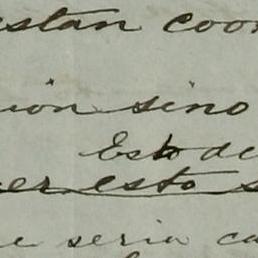 estan coo
ion sino
Esto de
er esto s
e seria ca